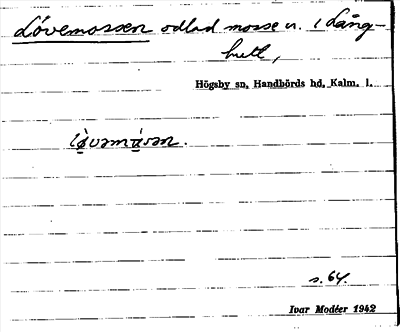 Lövemossen odlad mosse n. i Lång-
hult,
Högsby sn, Handbörds hd, Kalm. l.
s. 64.
Ivar Modéer 1942